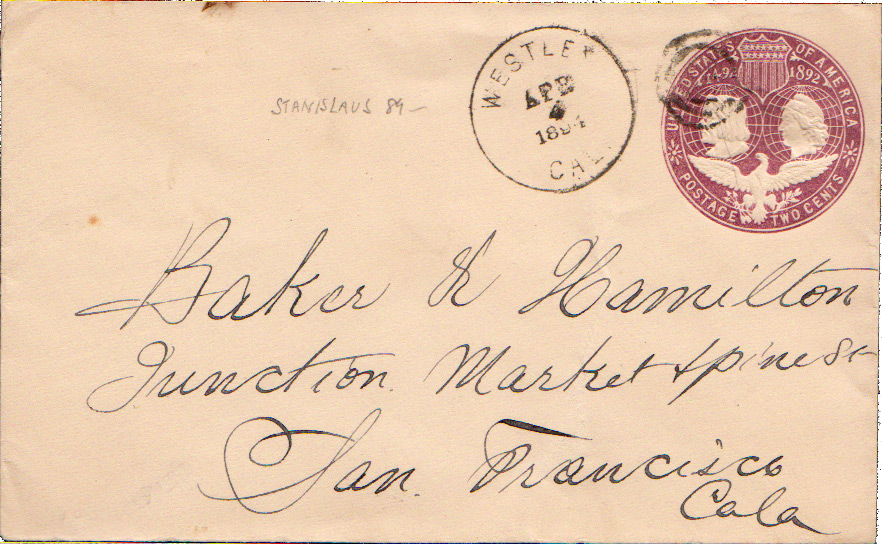 WESTLEY
APR
4
1894
CAL.
STANISLAUS 89-
UNITED STATES OF AMERICA
1492 1892
POSTAGE TWO CENTS
Baker & Hamilton
Junction. Market & pine St
San. Francisco
Cala